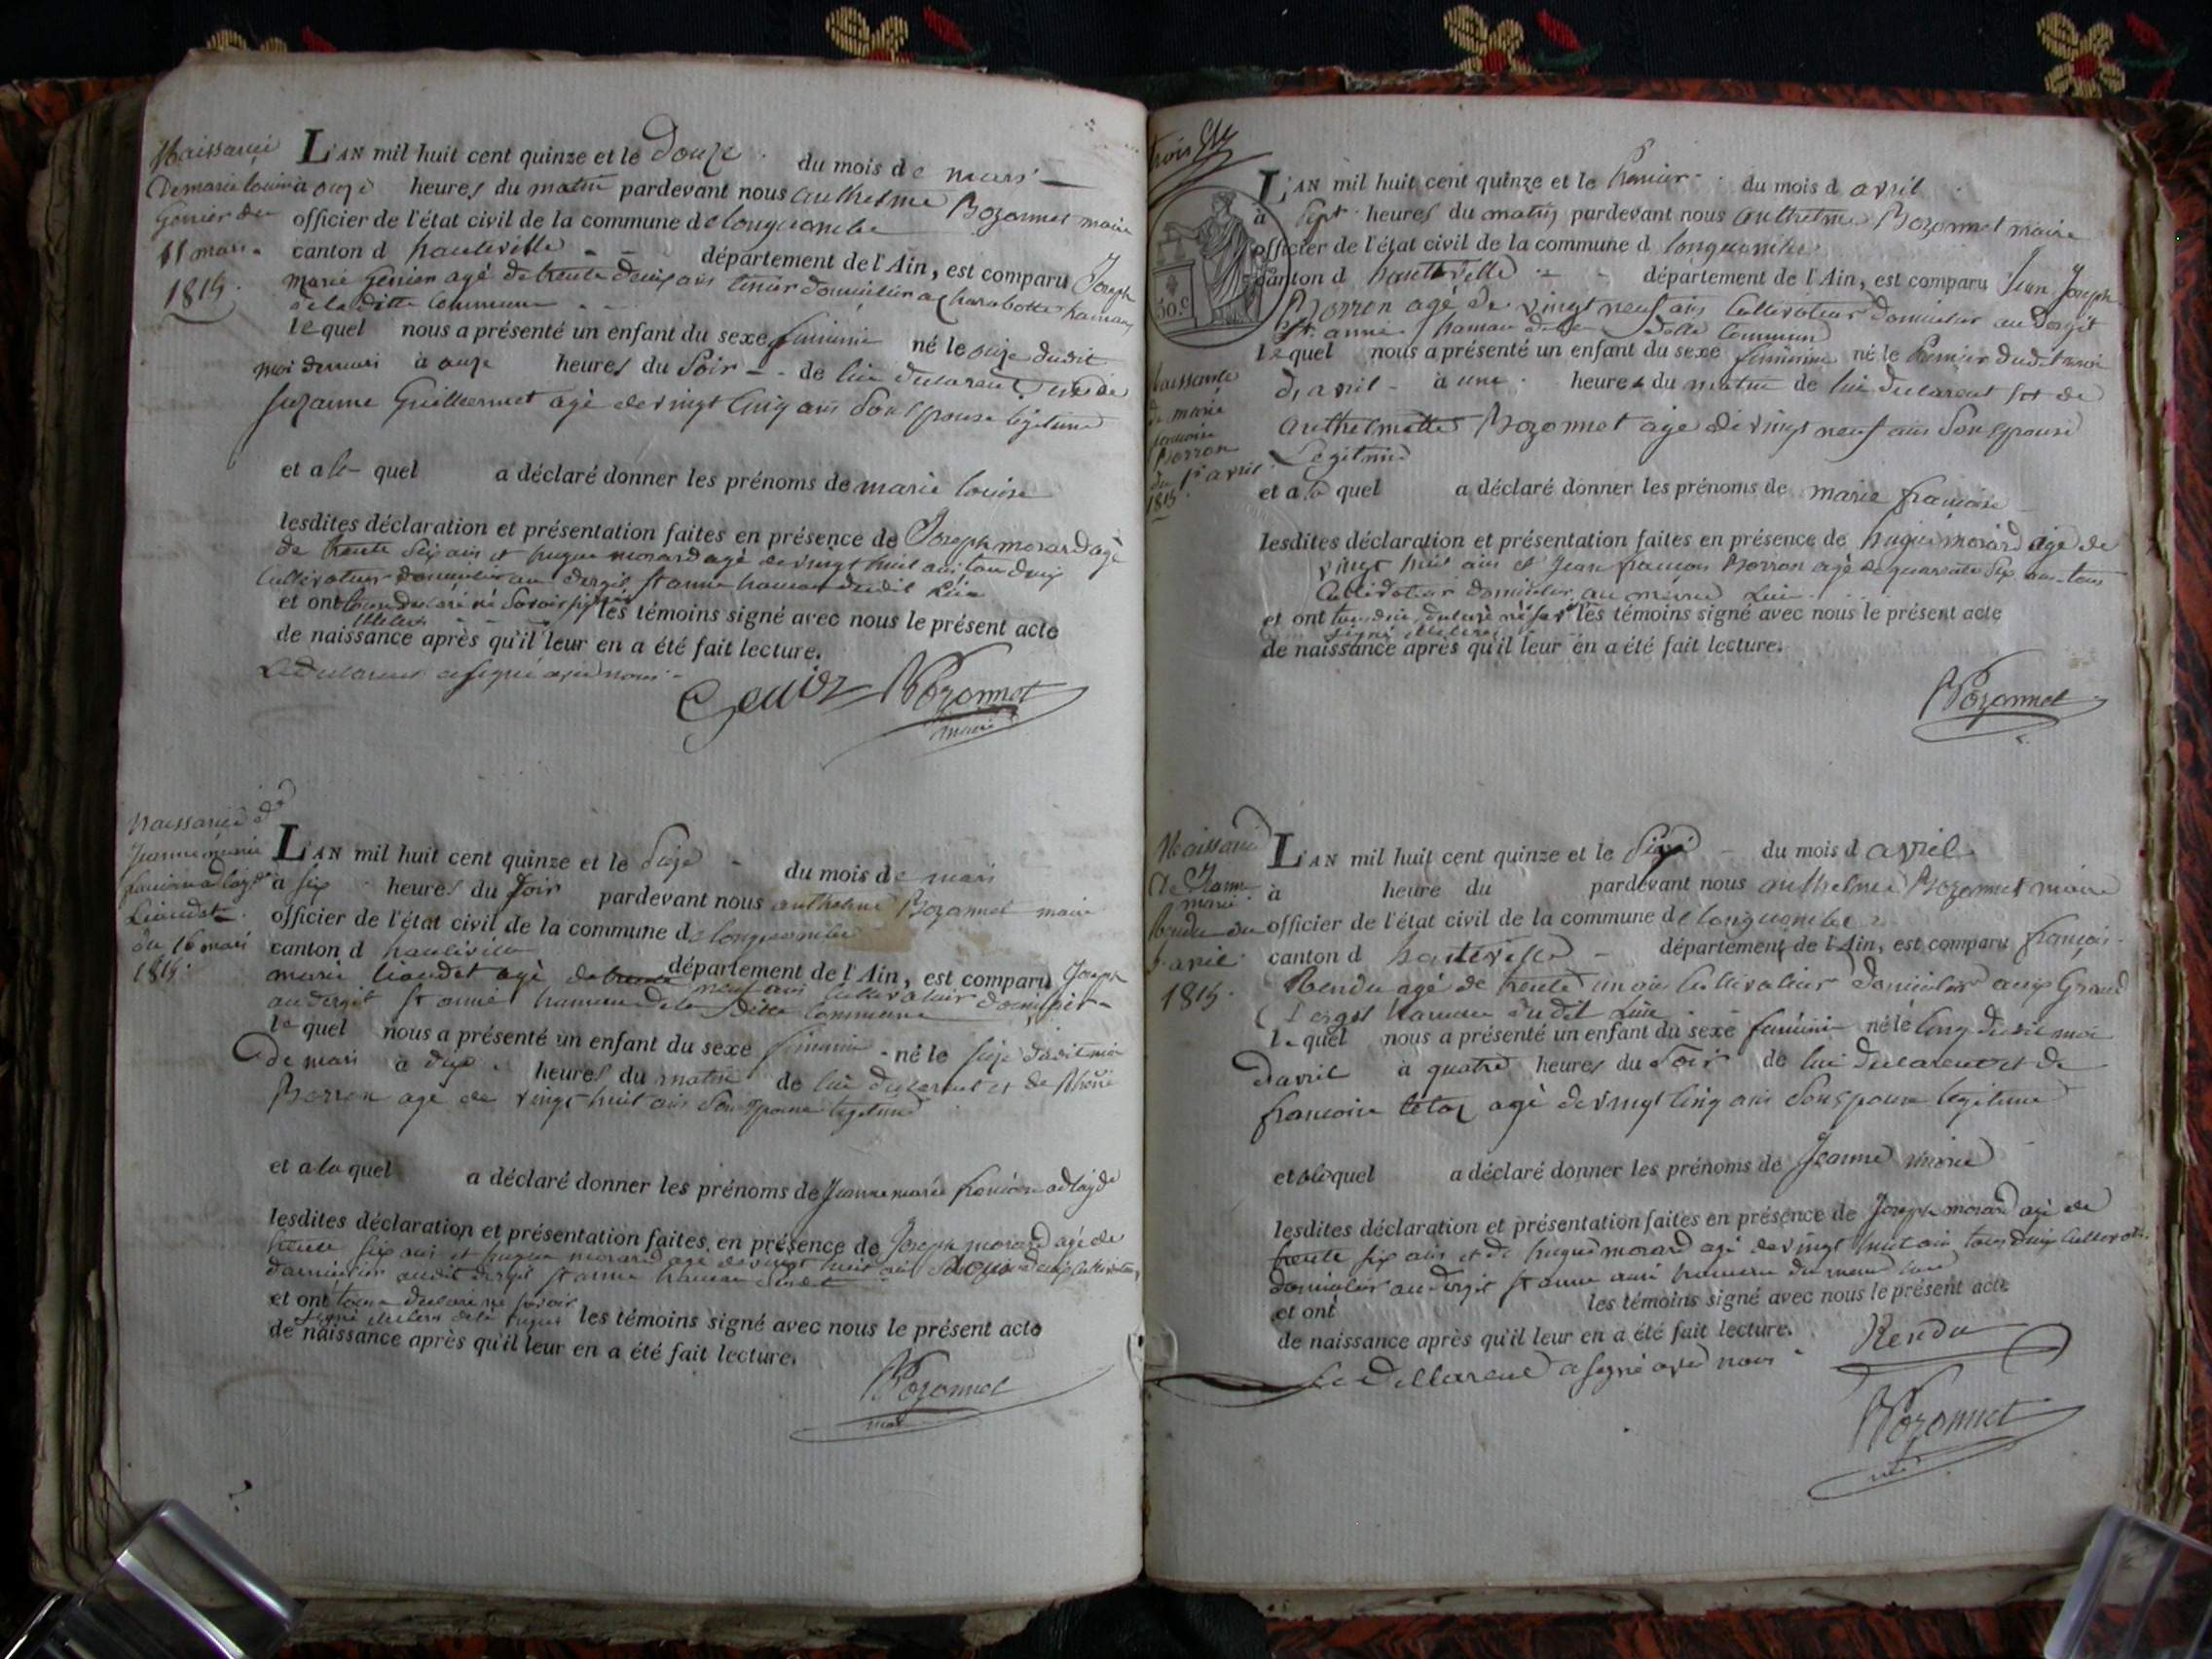 Naissance
De marie louise
Genier du
11 mars
1815.
L'AN mil huit cent quinze et le Douze du mois de mars
à onze heures du matin pardevant nous anthelme Bozonnet maire
officier de l'état civil de la commune de longecombe
canton d hauteville département de l'Ain, est comparu Joseph
marie Genier agé de trente deux ans domicilier a charabotte hameau
de la ditte Commune
lequel nous a présenté un enfant du sexe feminin né le onze dudit
moi de mars à onze heures du Soir de lui declarent et de
suzanne Guillermet agé de vingt cinq ans Son Epouse légitime
et a le quel a déclaré donner les prénoms de marie louise
lesdites déclaration et présentation faites en présence de Joseph morard agé
de trente Six ans et hugue morard agé de vingt huit ans tou deux
Cultivateur domicilier au dergit St anne hameau dudit Lieu
et ont déclaré ne Savoir signé les témoins signé avec nous le présent acte
de naissance après qu'il leur en a été fait lecture.
Le declarent a Signé avec nous
Genier Bozonnet
maire
Naissance de
Jeanne marie
francoise adlayde
Liaudet
du 16 mars
1815.
L'AN mil huit cent quinze et le Seize du mois de mars
à six heures du Soir pardevant nous anthelme Bozonnet maire
officier de l'état civil de la commune de longecombe
canton d hauteville département de l'Ain, est comparu Joseph
marie liaudet agé de trente neuf ans Cultivateur domicilier
au dergit St anne hameau de la ditte Commune
le quel nous a présenté un enfant du sexe feminin né le seize dudit moi
de mars à dix heures du matin de lui declarent et de
Borron agé de vingt huit ans Son Epouse légitime
et a la quel a déclaré donner les prénoms de Jeanne marie francoise adlayde
lesdites déclaration et présentation faites en présence de Joseph morard agé de
trente six ans et hugue morard agé de vingt huit ans tous deux Cultivateur
domicilier audit dergit St anne hameau
et ont tous déclaré ne savoir les témoins signé avec nous le présent acte
de naissance après qu'il leur en a été fait lecture.
Bozonnet
trois
50.c
Naissance
de marie
francoise
Borron
du 1er avril
1815.
L'AN mil huit cent quinze et le Premier du mois d avril
à Sept heures du matin pardevant nous anthelme Bozonnet maire
officier de l'état civil de la commune d longecombe
canton d hauteville département de l'Ain, est comparu Jean Joseph
Borron agé de vingt neuf ans Cultivateur domicilier au dergit
St. anne hameau de la ditte Commune
le quel nous a présenté un enfant du sexe feminin né le Premier dudit moi
d avril à une heure du matin de lui declarent et de
anthelmette Bozonnet agé de vingt neuf ans Son Epouse
Legitime
et a la quel a déclaré donner les prénoms de marie francoise
lesdites déclaration et présentation faites en présence de hugue morard agé de
vingt huit ans et Jean francois Borron agé de quarante Six ans tous
Cultivateur domicilier au meme Lieu
et ont tou deux declaré les témoins signé avec nous le présent acte
de naissance après qu'il leur en a été fait lecture.
Bozonnet
Naissance
De Jeanne
marie
Rendu du
5 avril
1815.
L'AN mil huit cent quinze et le Sixe du mois d avril
à heure du pardevant nous anthelme Bozonnet maire
officier de l'état civil de la commune de longecombe
canton d hauteville département de l'Ain, est comparu françois
Rendu agé de trente un ans Cultivateur domicilier aux Grand
Dergit hameau dudit Lieu
le quel nous a présenté un enfant du sexe feminin né le cinq dudit moi
d'avril à quatre heures du Soir de lui declarent et de
francoise agé de vingt cinq ans Son Epouse legitime
et a le quel a déclaré donner les prénoms de Jeanne marie
lesdites déclaration et présentation faites en présence de Joseph morard agé de
trente six ans et de hugue morard agé de vingt huit ans tous deux Cultivateur
domicilier au dergit St anne hameau du meme lieu
et ont les témoins signé avec nous le présent acte
de naissance après qu'il leur en a été fait lecture.
Le declarent a signé avec nous
Rendu
Bozonnet